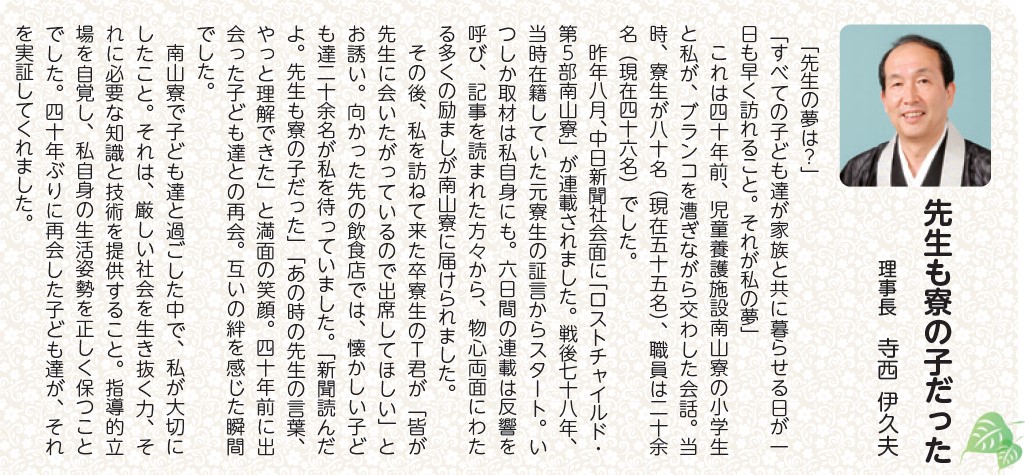 先生も寮の子だった
理事長　寺西 伊久夫
「先生の夢は？」
「すべての子ども達が家族と共に暮らせる日が一
日も早く訪れること。それが私の夢」
　これは四十年前、児童養護施設南山寮の小学生
と私が、ブランコを漕ぎながら交わした会話。当
時、寮生が八十名（現在五十五名）、職員は二十余
名（現在四十六名）でした。
　昨年八月、中日新聞社会面に「ロストチャイルド・
第５部南山寮」が連載されました。戦後七十八年、
当時在籍していた元寮生の証言からスタート。い
つしか取材は私自身にも。六日間の連載は反響を
呼び、記事を読まれた方々から、物心両面にわた
る多くの励ましが南山寮に届けられました。
　その後、私を訪ねて来た卒寮生のＴ君が「皆が
先生に会いたがっているので出席してほしい」と
お誘い。向かった先の飲食店では、懐かしい子ど
も達二十余名が私を待っていました。「新聞読んだ
よ。先生も寮の子だった」「あの時の先生の言葉、
やっと理解できた」と満面の笑顔。四十年前に出
会った子ども達との再会。互いの絆を感じた瞬間
でした。
　南山寮で子ども達と過ごした中で、私が大切に
したこと。それは、厳しい社会を生き抜く力、そ
れに必要な知識と技術を提供すること。指導的立
場を自覚し、私自身の生活姿勢を正しく保つこと
でした。四十年ぶりに再会した子ども達が、それ
を実証してくれました。